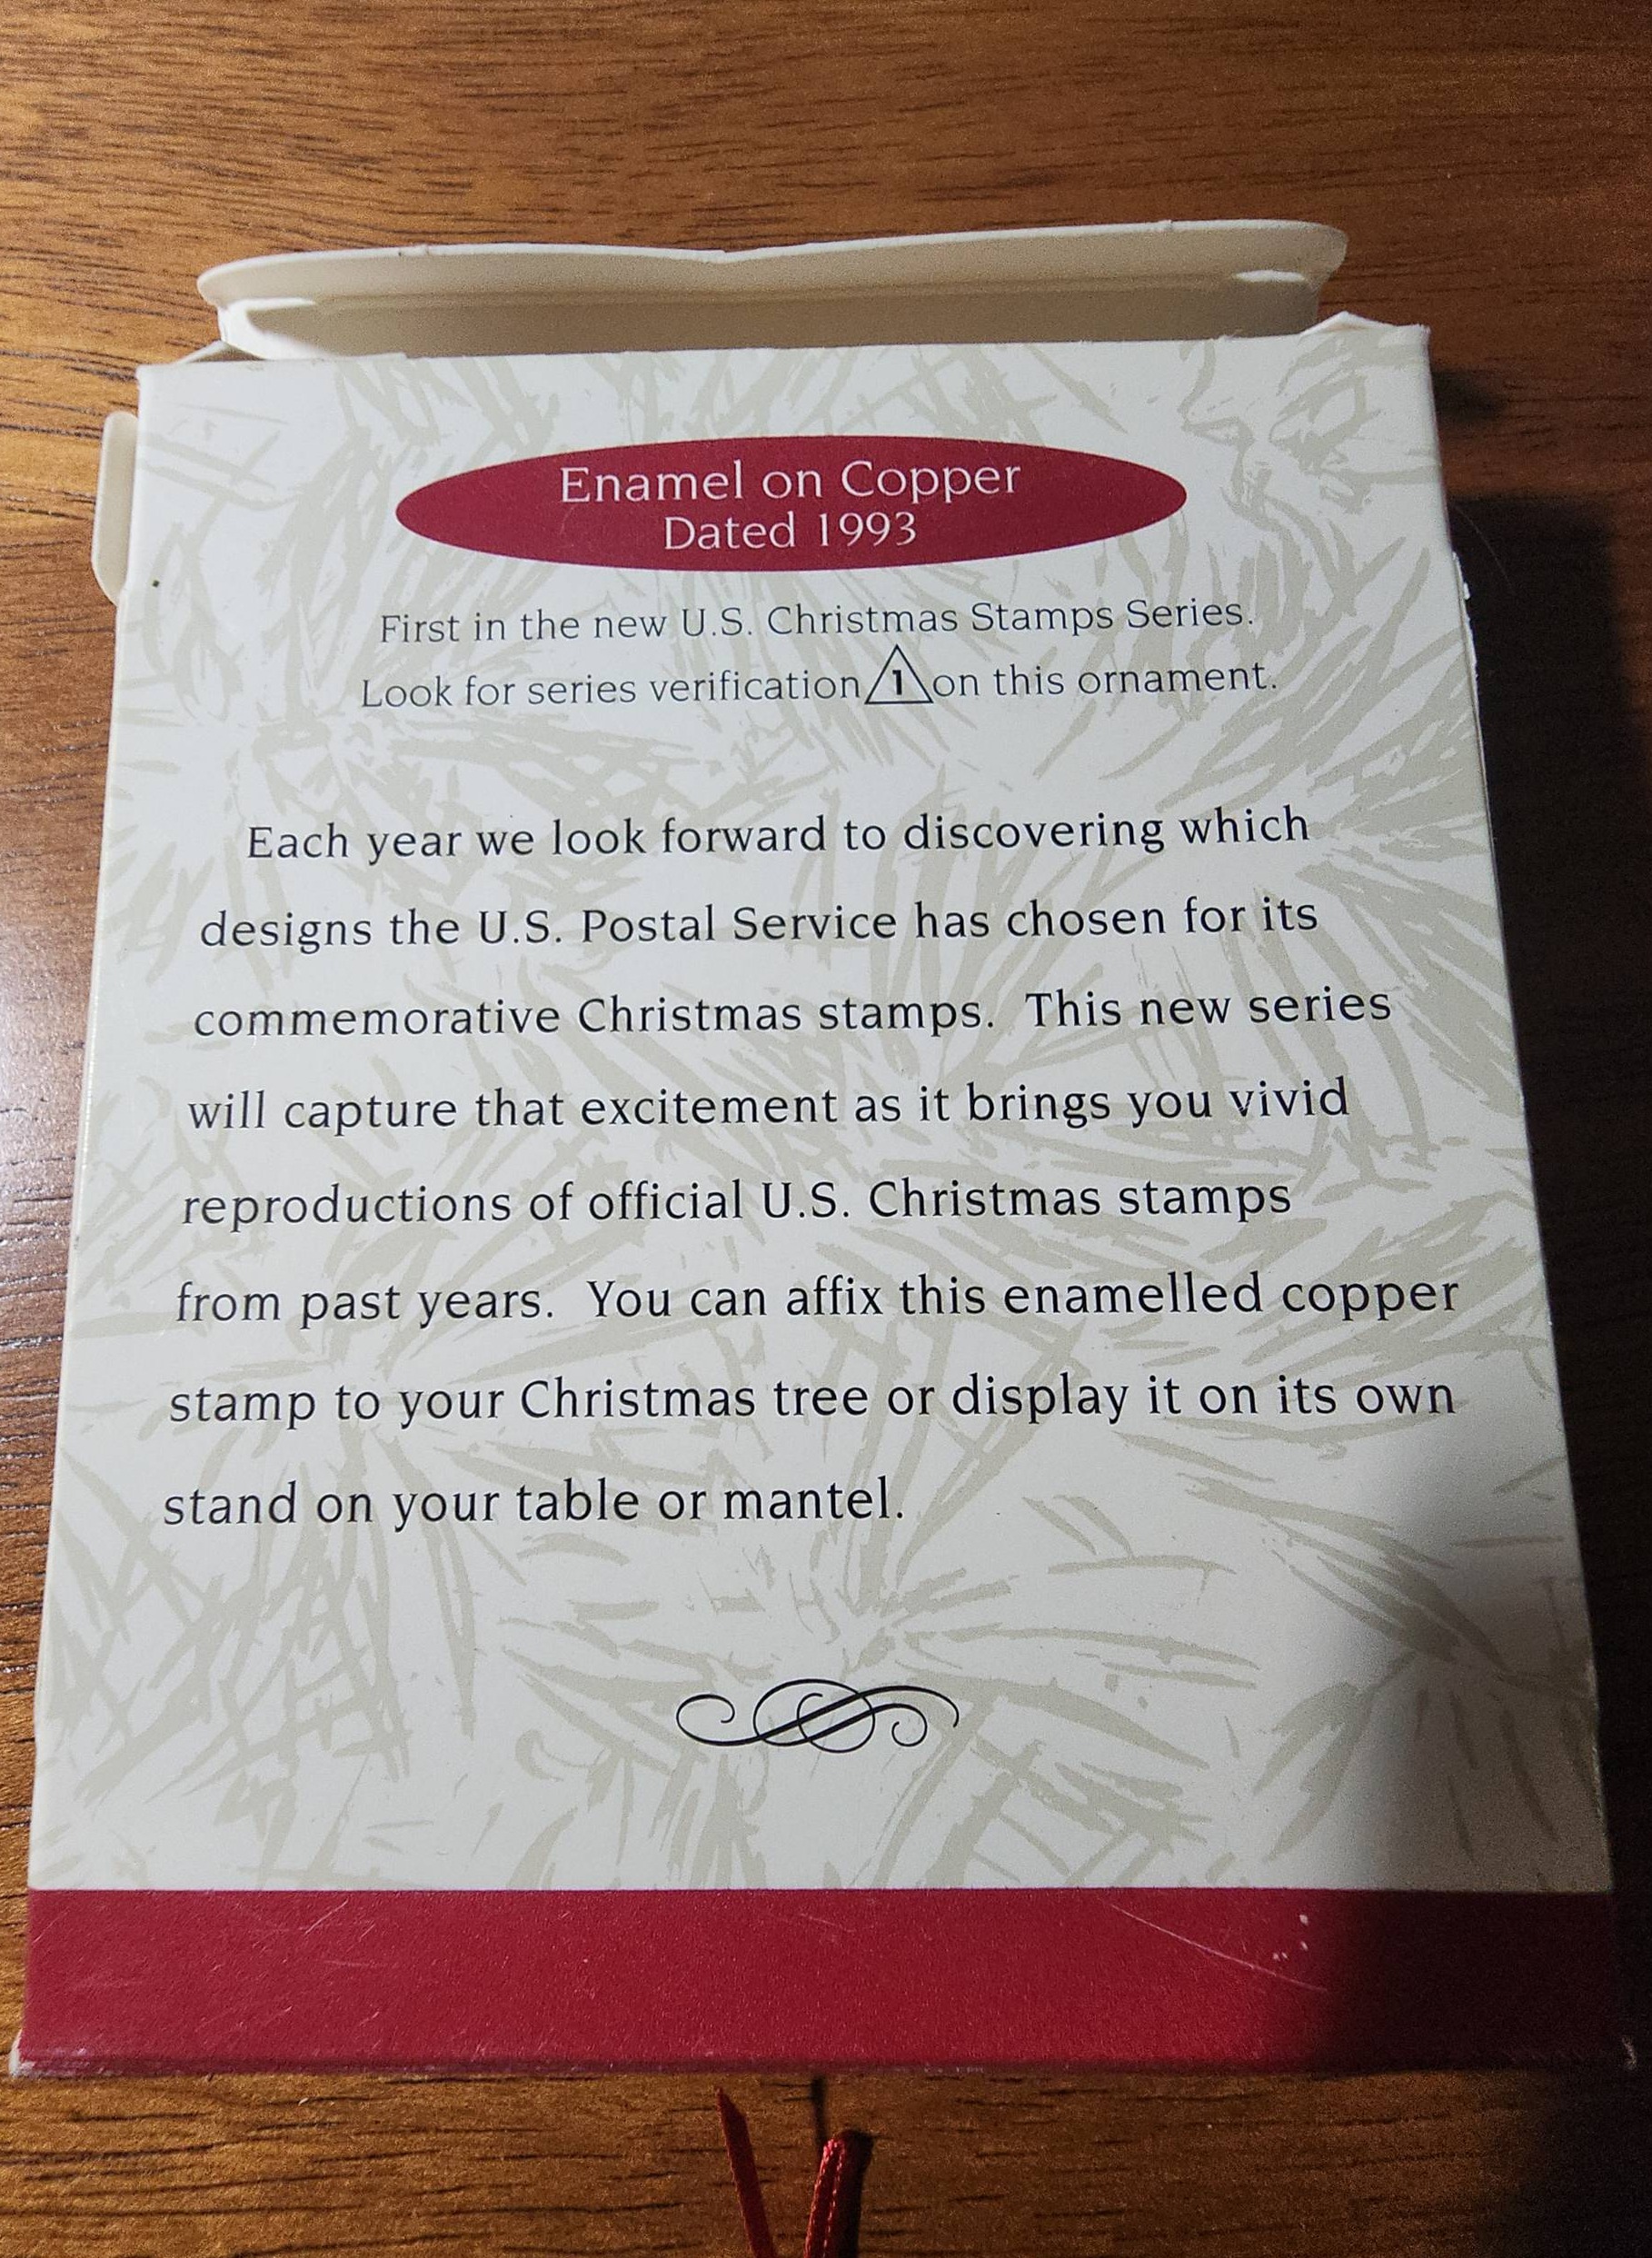 Enamel on Copper
Dated 1993
First in the new U.S. Christmas Stamps Series.
Look for series verification 1 on this ornament.
Each year we look forward to discovering which
designs the U.S. Postal Service has chosen for its
commemorative Christmas stamps. This new series
will capture that excitement as it brings you vivid
reproductions of official U.S. Christmas stamps
from past years. You can affix this enamelled copper
stamp to your Christmas tree or display it on its own
stand on your table or mantel.